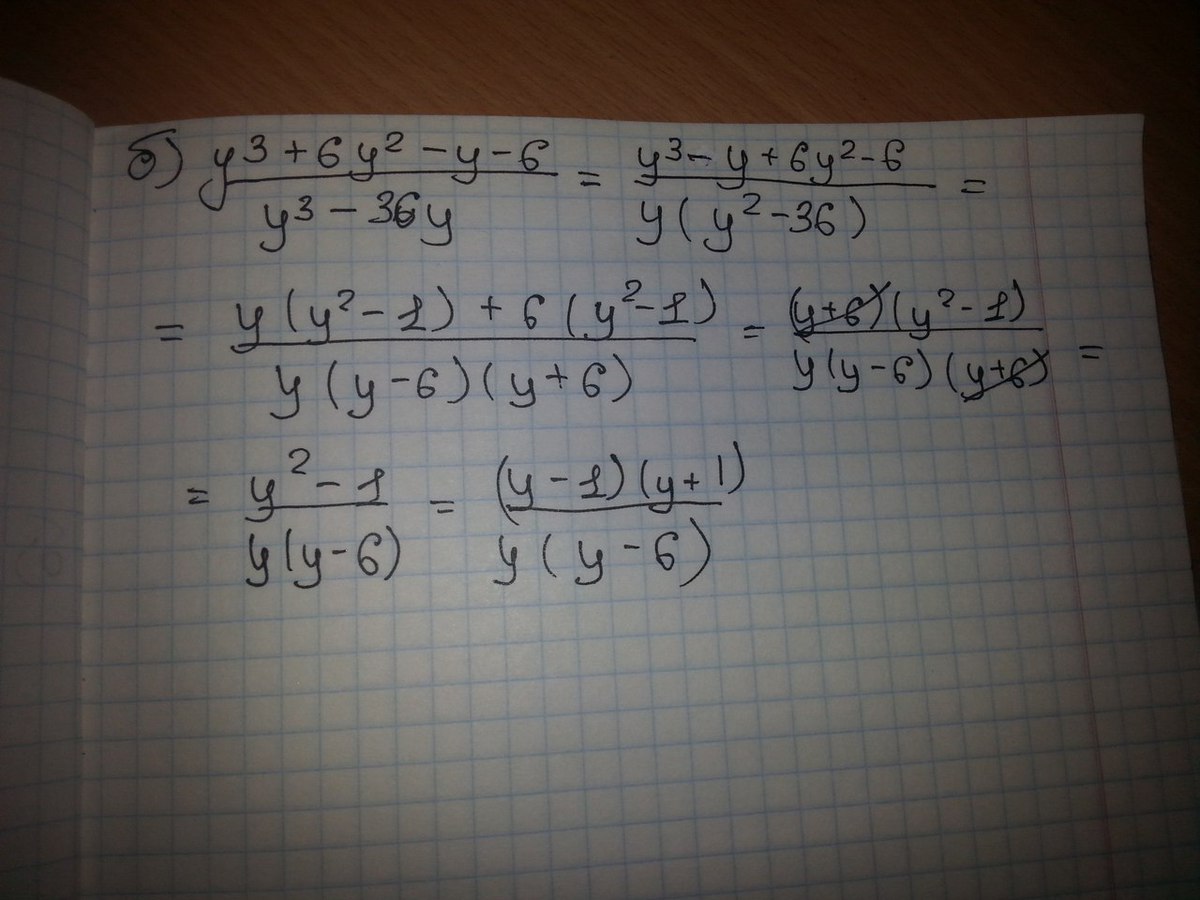 б) (y³ + 6y² - y - 6)/(y³ - 36y) = (y³ - y + 6y² - 6)/(y(y² - 36)) =
= (y(y² - 1) + 6(y² - 1))/(y(y - 6)(y + 6)) = ((y+6)(y² - 1))/(y(y - 6)(y+6)) =
= (y² - 1)/(y(y - 6)) = ((y - 1)(y + 1))/(y(y - 6))